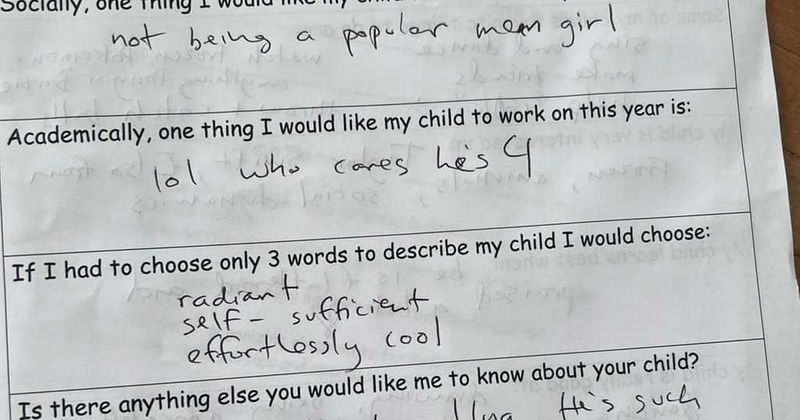 Socially, one thing I would like my child
not being a popular mean girl
Academically, one thing I would like my child to work on this year is:
lol who cares he's 4
If I had to choose only 3 words to describe my child I would choose:
radiant
self-sufficient
effortlessly cool
Is there anything else you would like me to know about your child?
He's such